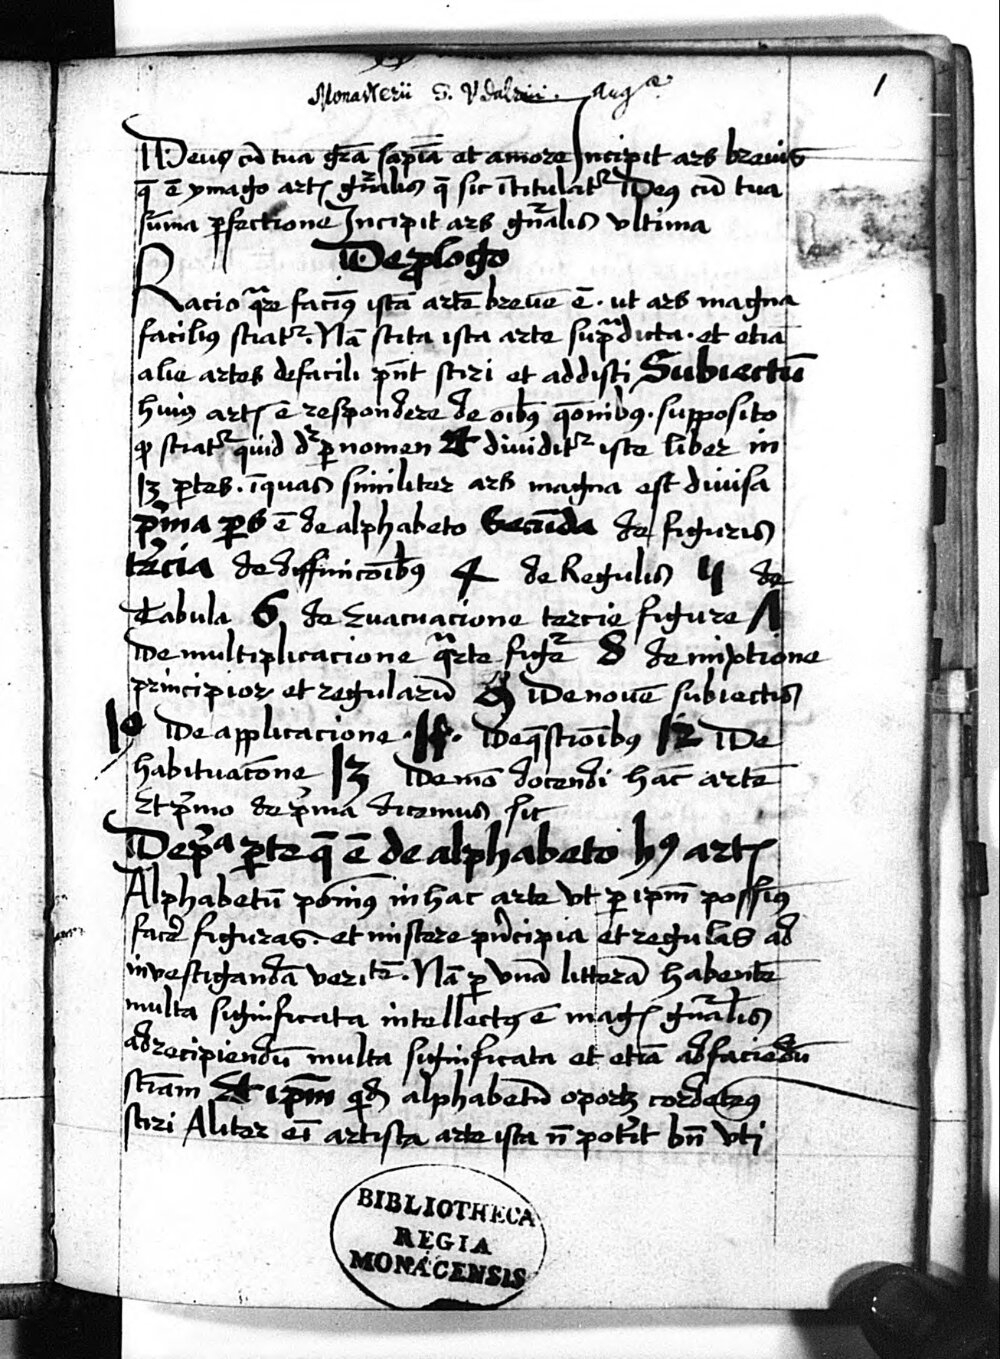 Monasterii S. Vdalrici. Aug.ᵉ
1
Deus cū tua gr̄a sapīa et amore Incipit ars breuis
q̄ ē ymago artꝭ gn̄alis q̄ sic ītitulatʳ Deꝰ cū tua
sūma ꝑfectione Incipit ars gn̄alis vltima
De ꝓlogo
Racio quare facimꝰ istā artē breuē ē. ut ars magna
faciliꝰ sciatʳ. Nā scita ista arte supᵃdicta. et etiā
alie artes defacili pn̄t sciri et addisci Subiectū
huiꝰ artꝭ ē respondere de oībꝰ q̄onibꝰ. supposito
ꝙ sciatʳ quid dʳ ꝑ nomen Et diuiditʳ iste liber in
13 ꝑtes. īquas similiter ars magna est diuisa
pⁱma ꝑs ē de alphabeto Secūda de figuris
tʳcia de diffinicōibꝰ 4 de Regulis 5 de
Tabula 6 de Euacuacione tercie figure 7
De multiplicacione qᵃrte figʳe 8 de mixtione
principioꝝ et regularū 9 De nouē subiectis
10 De applicacione. 11. De q̄stiōibꝰ 12 De
habituacōne 13 De mō docendi hāc artē
Et pⁱmo de pⁱma dicemus sic
De pⁱᵃ ꝑte q̄ ē de alphabeto hꝰ artꝭ
Alphabetū ponimꝰ in hac arte vt ꝑ ipm̄ possimꝰ
facʳe figuras. et miscere pⁱncipia et regulas ad
inuestigandā veritē. Nā ꝑ vnā litterā habentē
multa significata intellectꝰ ē magꝭ gn̄alis
ad recipiendū multa significata et etiā ad faciēdū
sciam Et ipm̄ qid alphabetū oportꝫ cordetenꝰ
sciri Aliter eī artista arte ista n̄ potʳit bn̄ vti
BIBLIOTHECA
REGIA
MONACENSIS